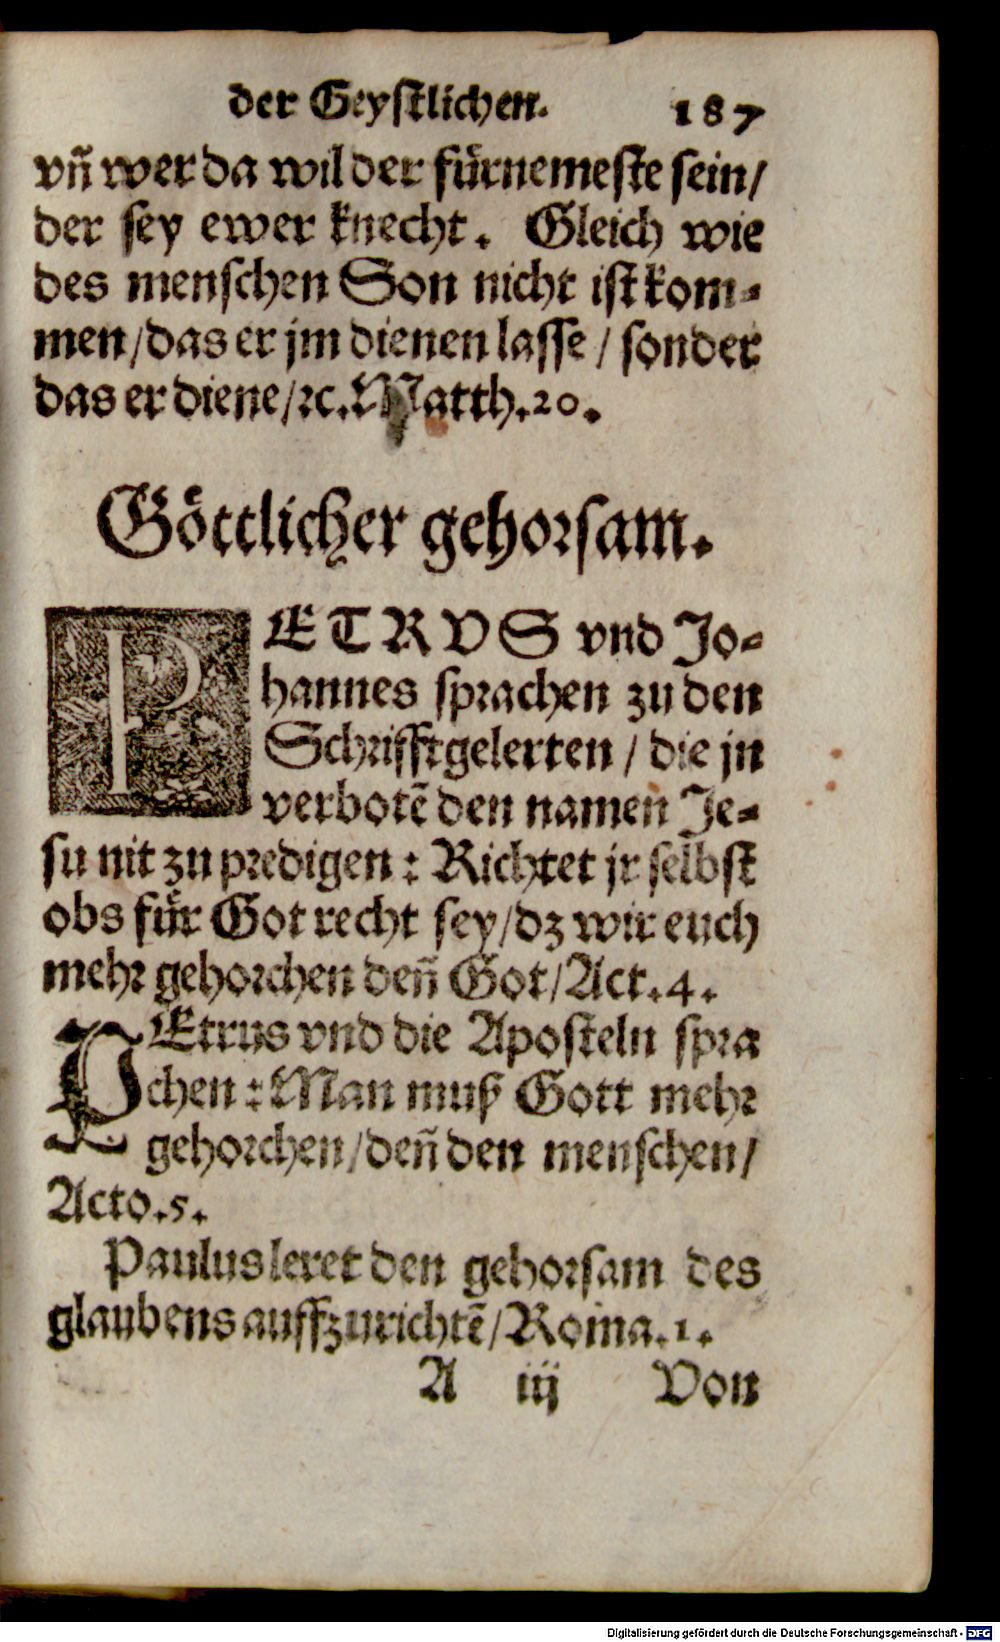 der Geystlichen. 187
vñ wer da wil der fürnemeste sein/
der sey ewer knecht. Gleich wie
des menschen Son nicht ist kom-
men/das er jm dienen lasse / sonder
das er diene/ꝛc. Matth.20.
Göttlicher gehorsam.
PETRVS vnd Jo-
hannes sprachen zu den
Schrifftgelerten / die jn
verbotē den namen Je-
su nit zu predigen : Richtet jr selbst
obs für Got recht sey/dz wir euch
mehr gehorchen deñ Got/Act.4.
PEtrus vnd die Aposteln spra
chen : Man muß Gott mehr
gehorchen/deñ den menschen/
Acto.5.
Paulus leret den gehorsam des
glaubens auffzurichtē/Roma.1.
A iij Von
Digitalisierung gefördert durch die Deutsche Forschungsgemeinschaft - DFG